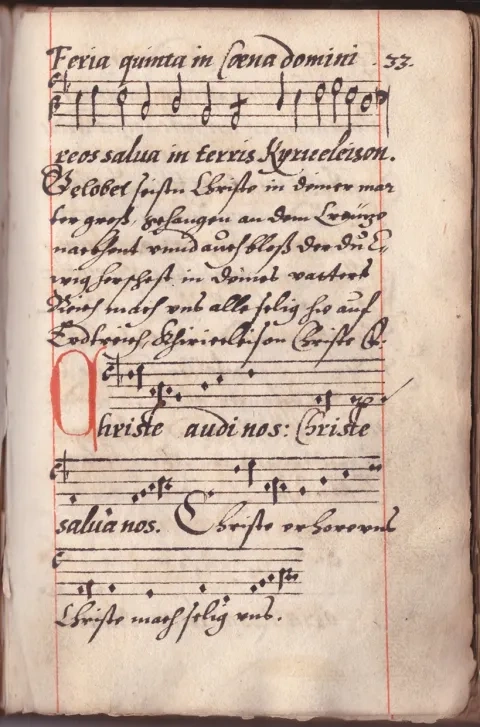 Feria quinta in Cœna domini . 33.
reos salua in terris Kyrieeleison.
Gelobet seistu Christe in deiner mar
ter groß, gehangen an dem Creutze
nackhent vnnd auch bloß der du E-
wig herschest in deines vatters
Reich mach vns alle selig hie auf
Erdtreich, Khirieeleison Christe
Christe audi nos: Christe
salua nos. Christe erhore vns
Christe mach selig vns.